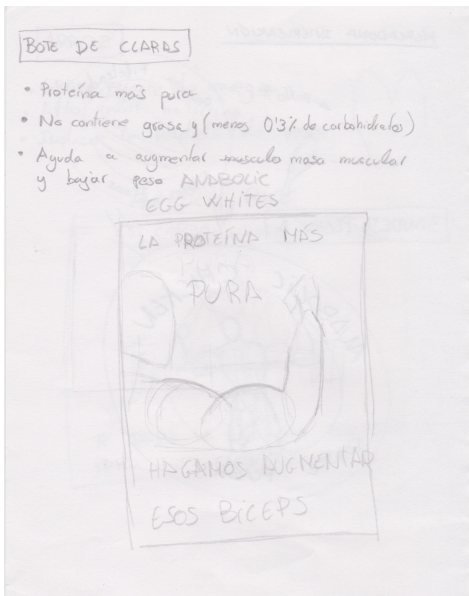 BOTE DE CLARAS
• Proteína más pura
• No contiene grasa y (menos 0'3% de carbohidratos)
• Ayuda a augmentar musculo masa muscular
y bajar peso
ANABOLIC
EGG WHITES
LA PROTEÍNA MÁS
PURA
HAGAMOS AUGMENTAR
ESOS BÍCEPS